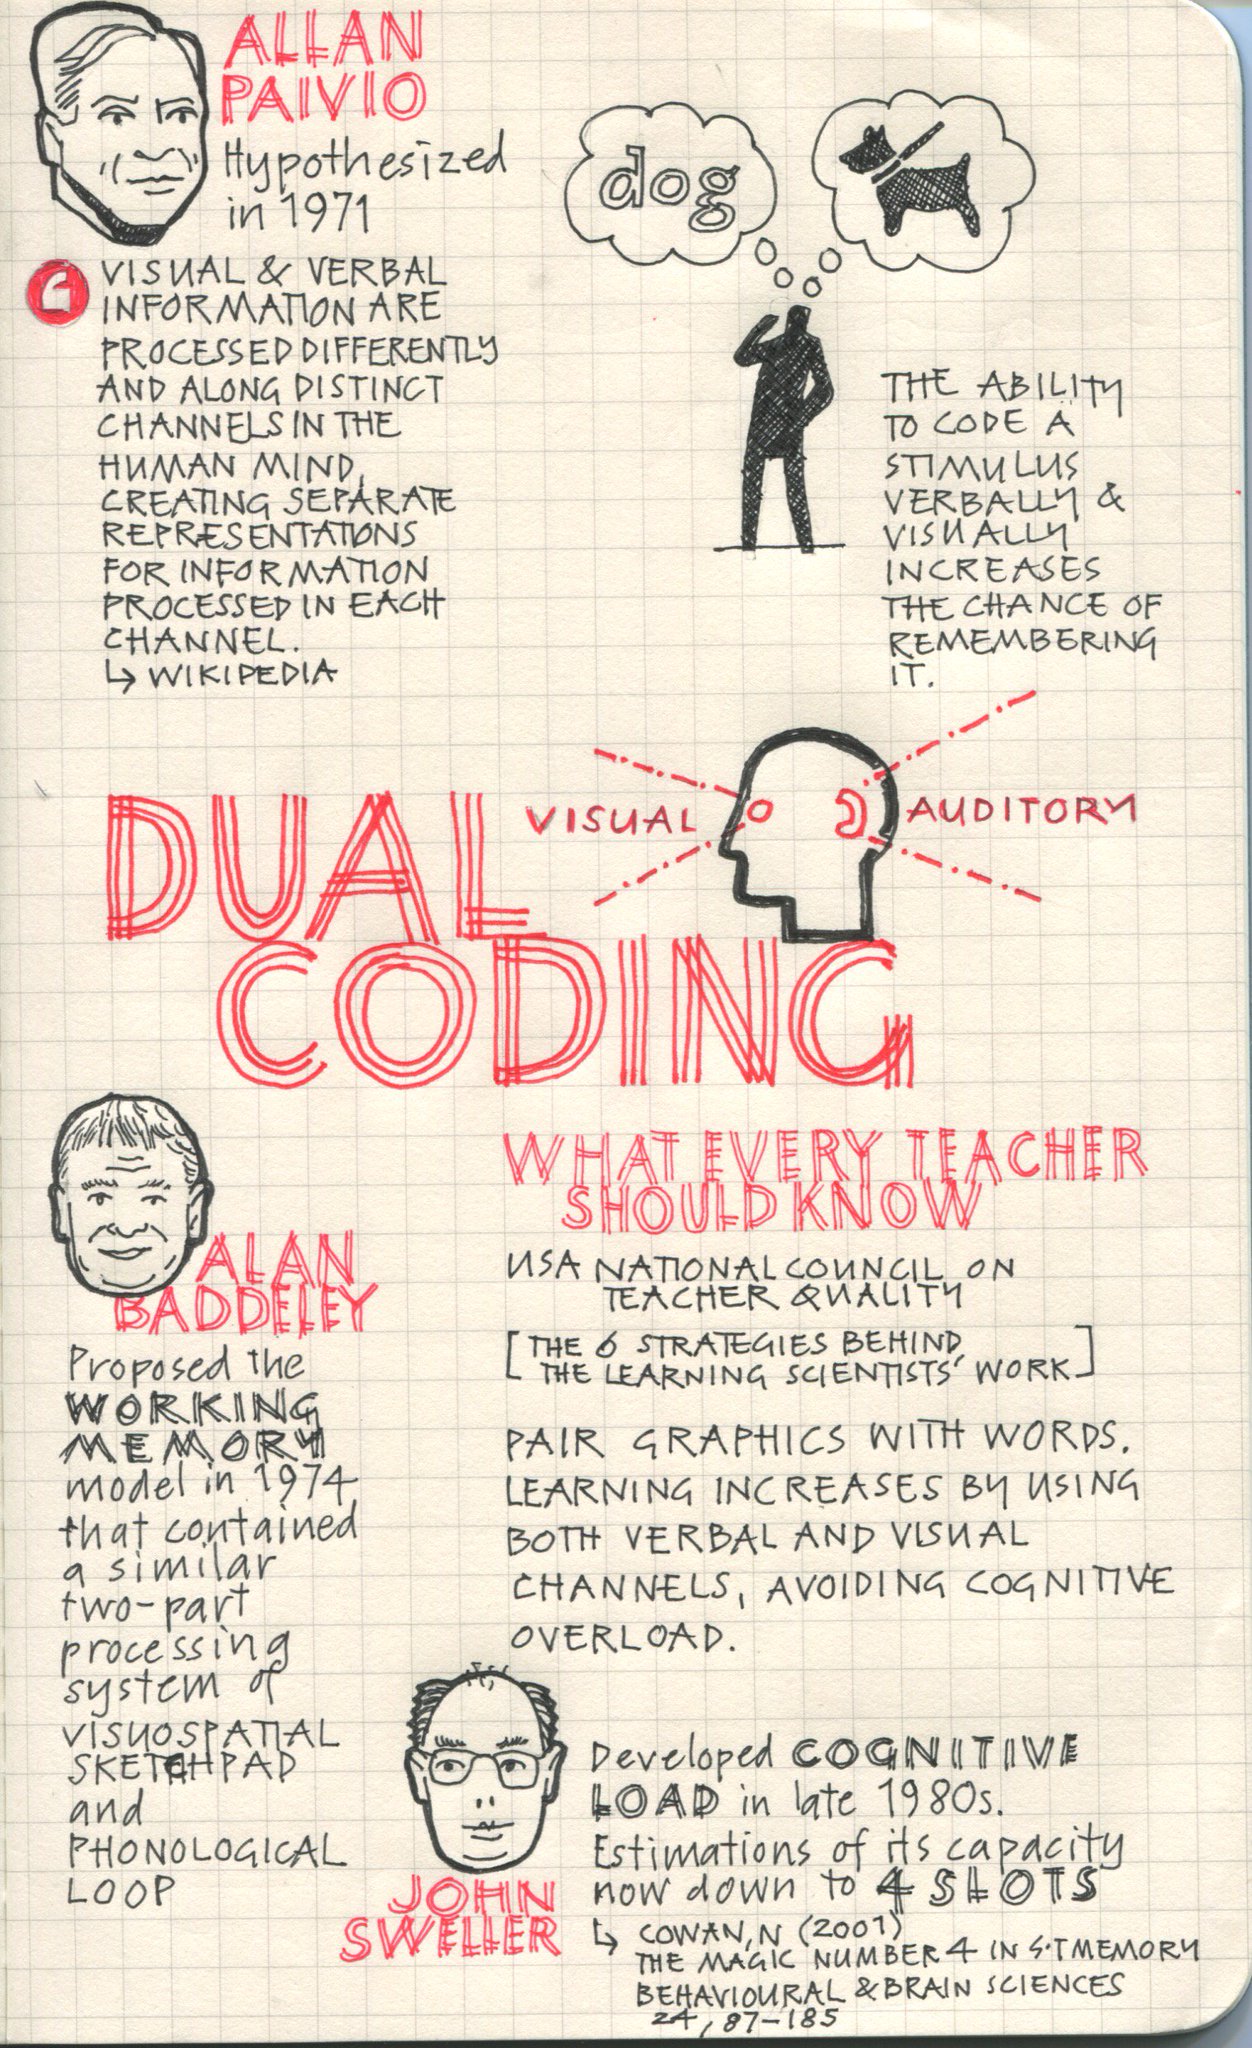 ALLAN
PAIVIO
Hypothesized
in 1971
VISUAL & VERBAL
INFORMATION ARE
PROCESSED DIFFERENTLY
AND ALONG DISTINCT
CHANNELS IN THE
HUMAN MIND,
CREATING SEPARATE
REPRESENTATIONS
FOR INFORMATION
PROCESSED IN EACH
CHANNEL.
↳ WIKIPEDIA
dog
THE ABILITY
TO CODE A
STIMULUS
VERBALLY &
VISUALLY
INCREASES
THE CHANCE OF
REMEMBERING
IT.
VISUAL
AUDITORY
DUAL
CODING
ALAN
BADDELEY
Proposed the
WORKING
MEMORY
model in 1974
that contained
a similar
two-part
processing
system of
VISUOSPATIAL
SKETCHPAD
and
PHONOLOGICAL
LOOP
WHAT EVERY TEACHER
SHOULD KNOW
USA NATIONAL COUNCIL ON
TEACHER QUALITY
[THE 6 STRATEGIES BEHIND
THE LEARNING SCIENTISTS' WORK]
PAIR GRAPHICS WITH WORDS.
LEARNING INCREASES BY USING
BOTH VERBAL AND VISUAL
CHANNELS, AVOIDING COGNITIVE
OVERLOAD.
JOHN
SWELLER
Developed COGNITIVE
LOAD in late 1980s.
Estimations of its capacity
now down to 4 SLOTS
↳ COWAN, N (2001)
THE MAGIC NUMBER 4 IN S·T MEMORY
BEHAVIOURAL & BRAIN SCIENCES
24, 87-185